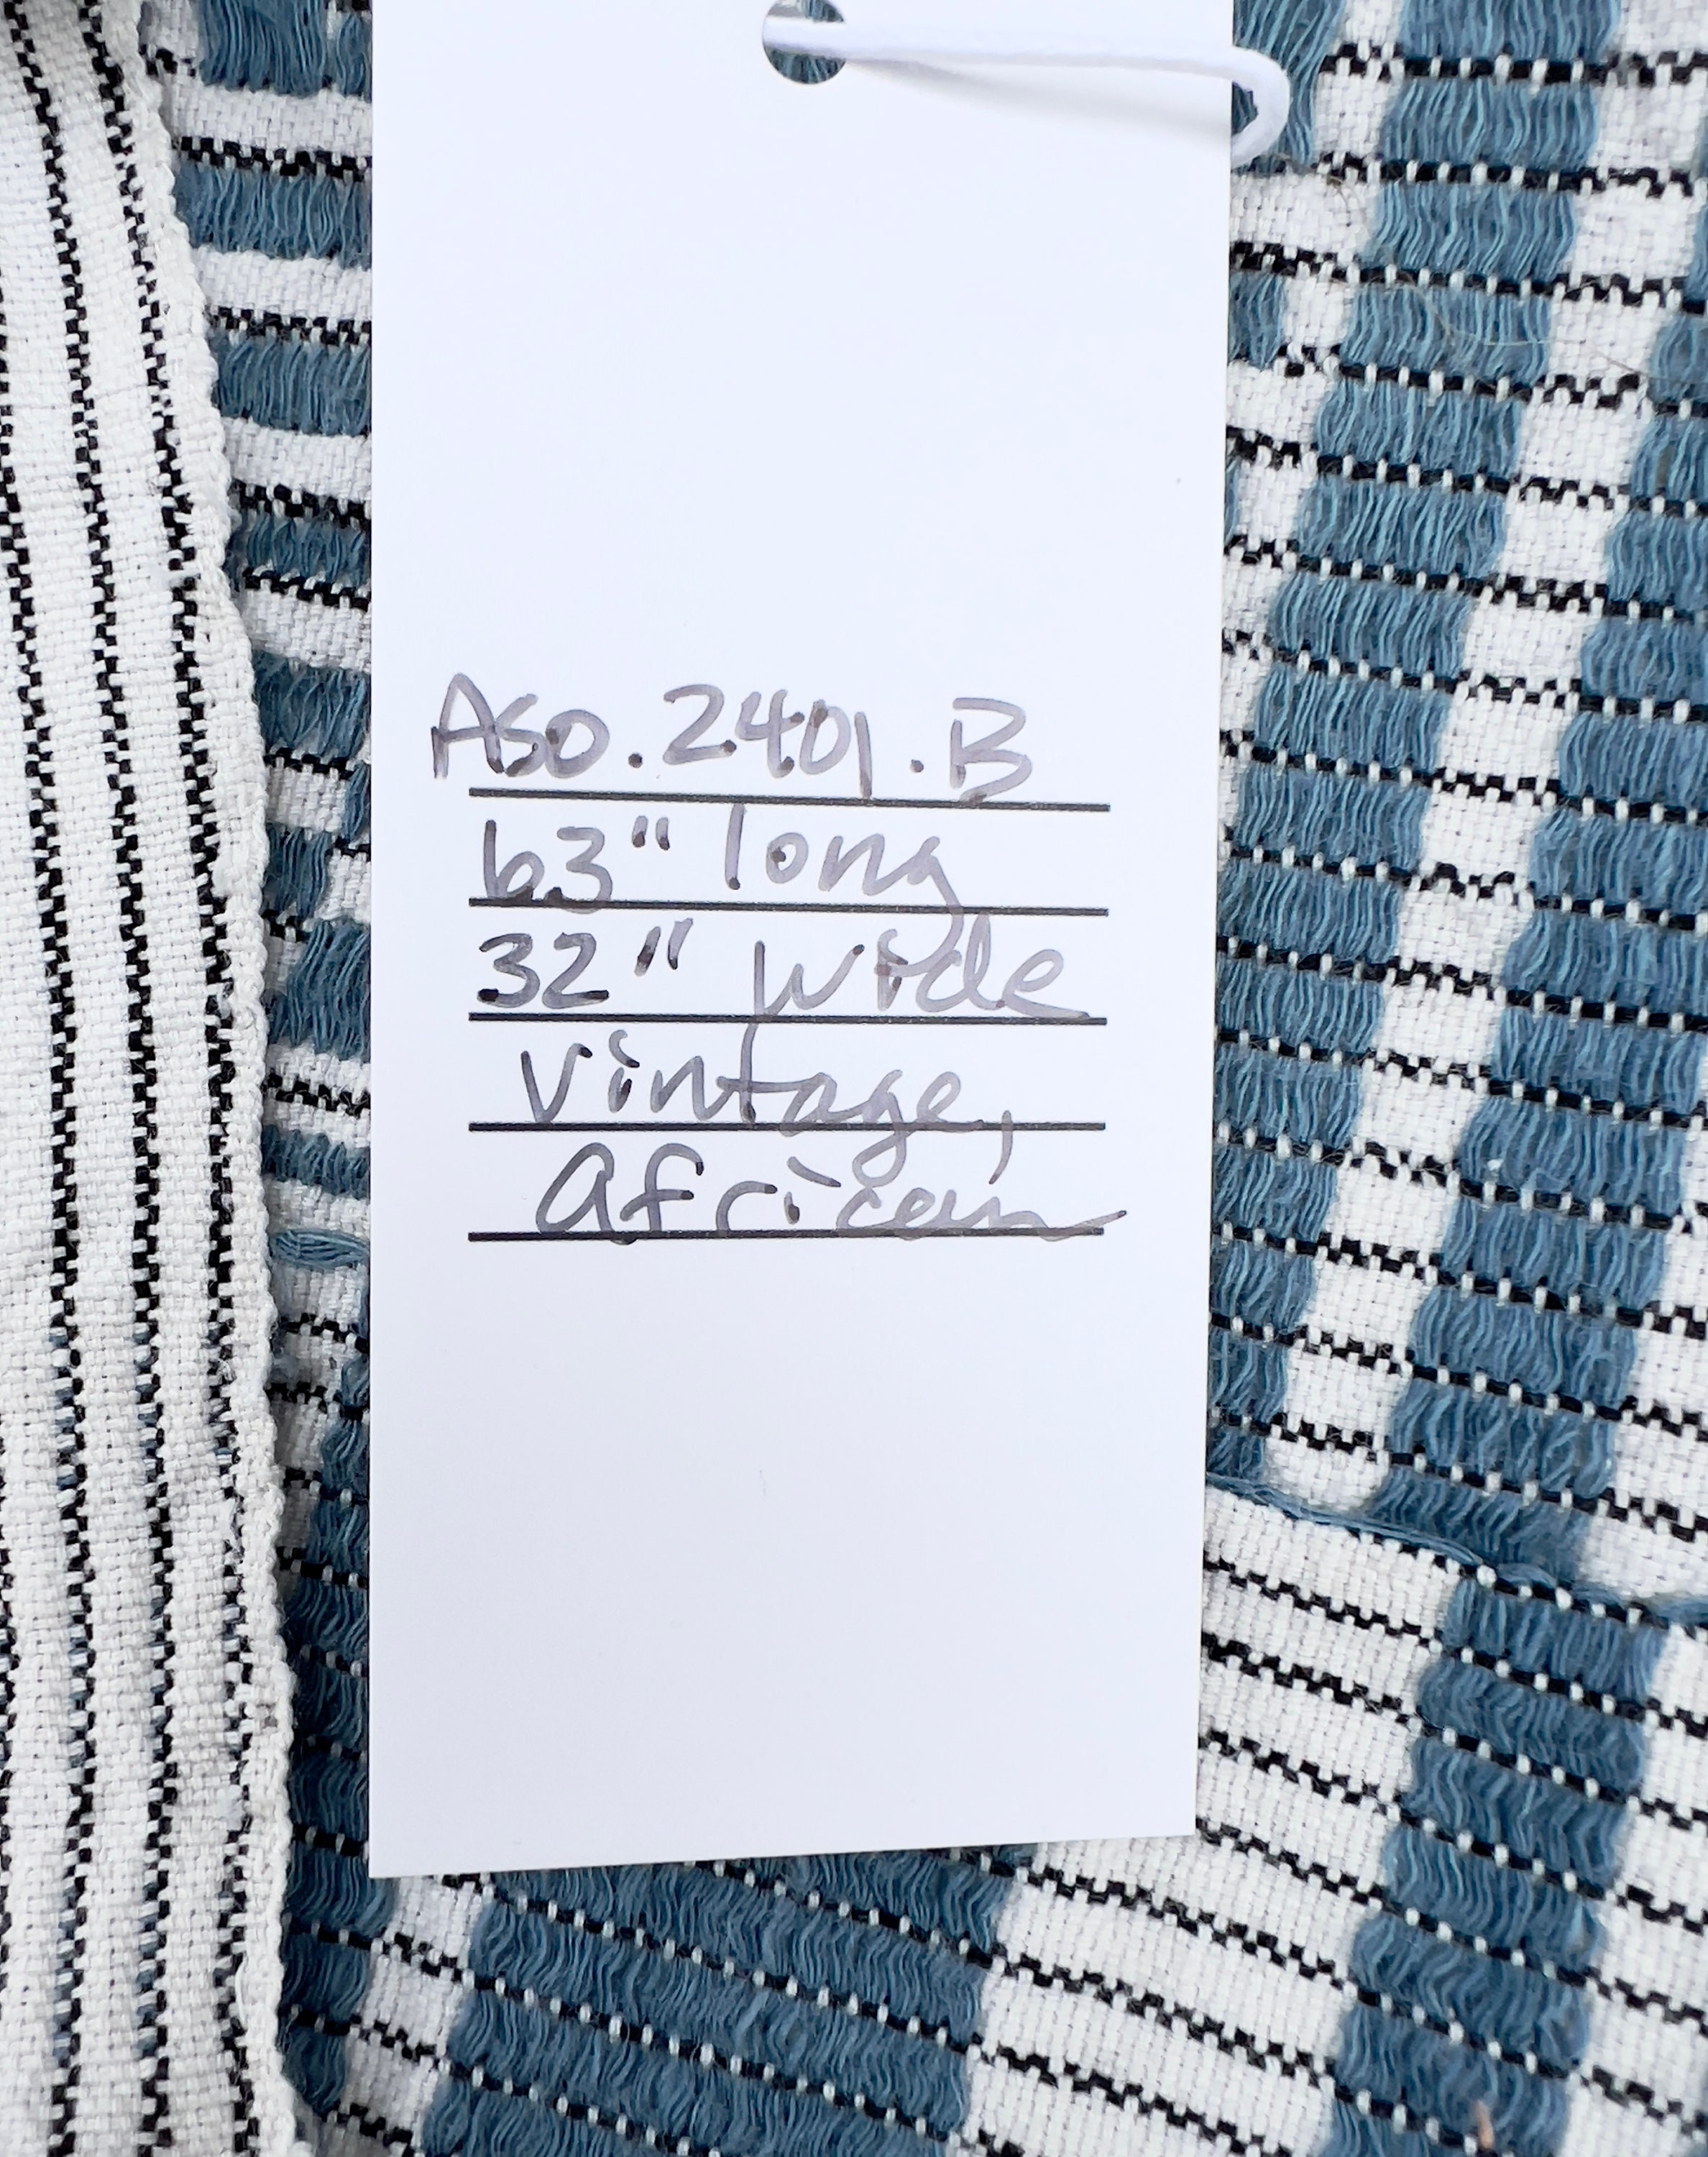 Aso.2401.B
63" long
32" wide
Vintage,
African